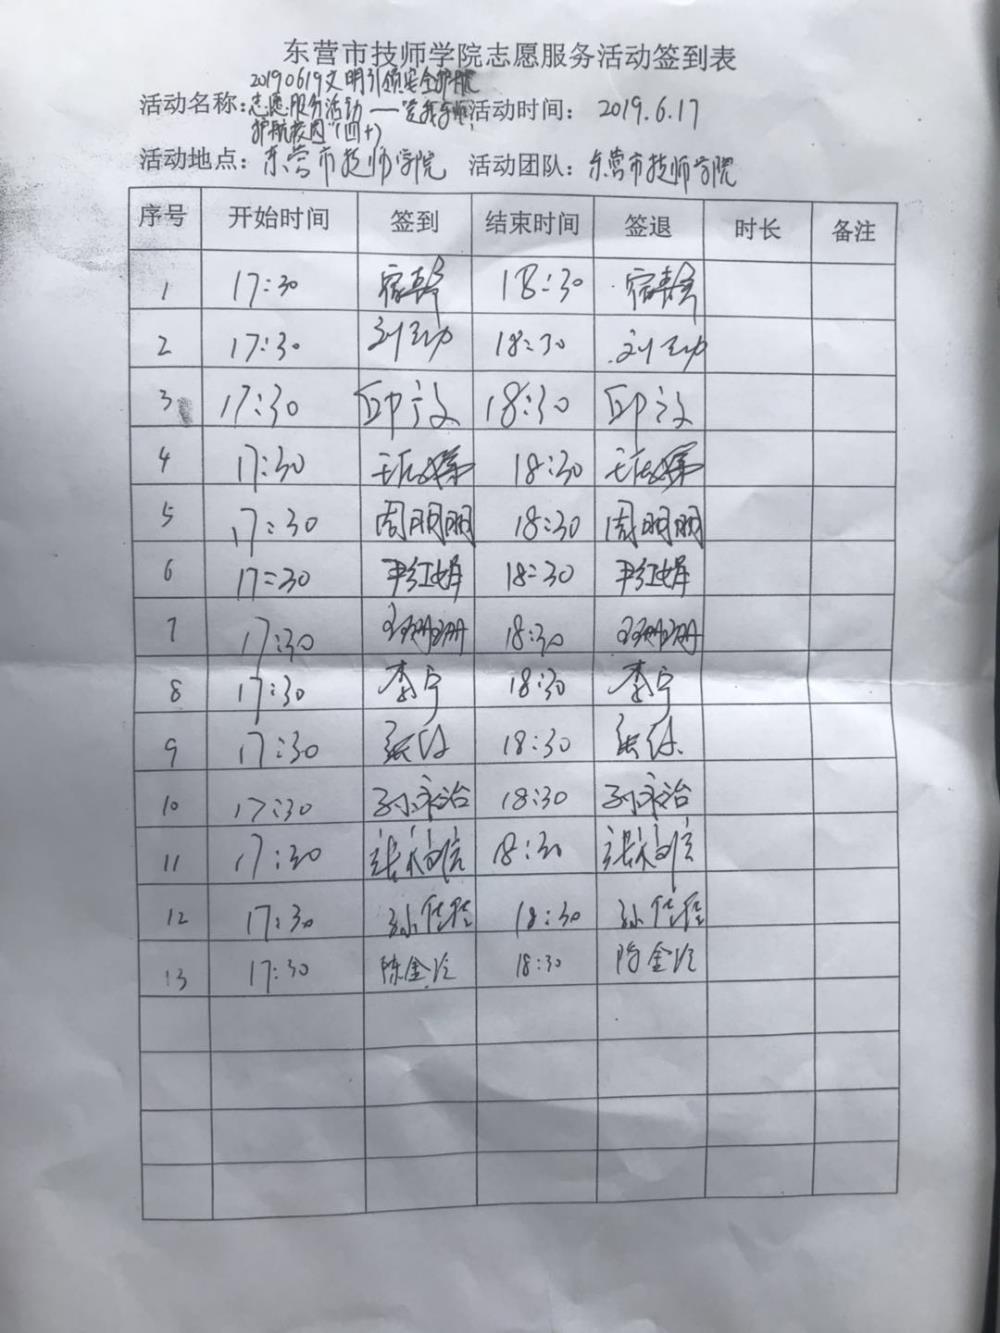 东营市技师学院志愿服务活动签到表
活动名称：20190619文明引领安全护航
志愿服务活动——"
护航校园"(四十)
活动时间： 2019.6.17
活动地点： 东营市技师学院 活动团队： 东营市技师学院
序号 开始时间 签到 结束时间 签退 时长 备注
1 17:30 18:30
2 17:30 18:30
3 17:30 18:30
4 17:30 18:30
5 17:30 周明明 18:30 周明明
6 17:30 尹红娟 18:30 尹红娟
7 17:30 王珊珊 18:30 王珊珊
8 17:30 李宁 18:30 李宁
9 17:30 18:30
10 17:30 孙永治 18:30 孙永治
11 17:30 18:30
12 17:30 18:30
13 17:30 陈金 18:30 陈金